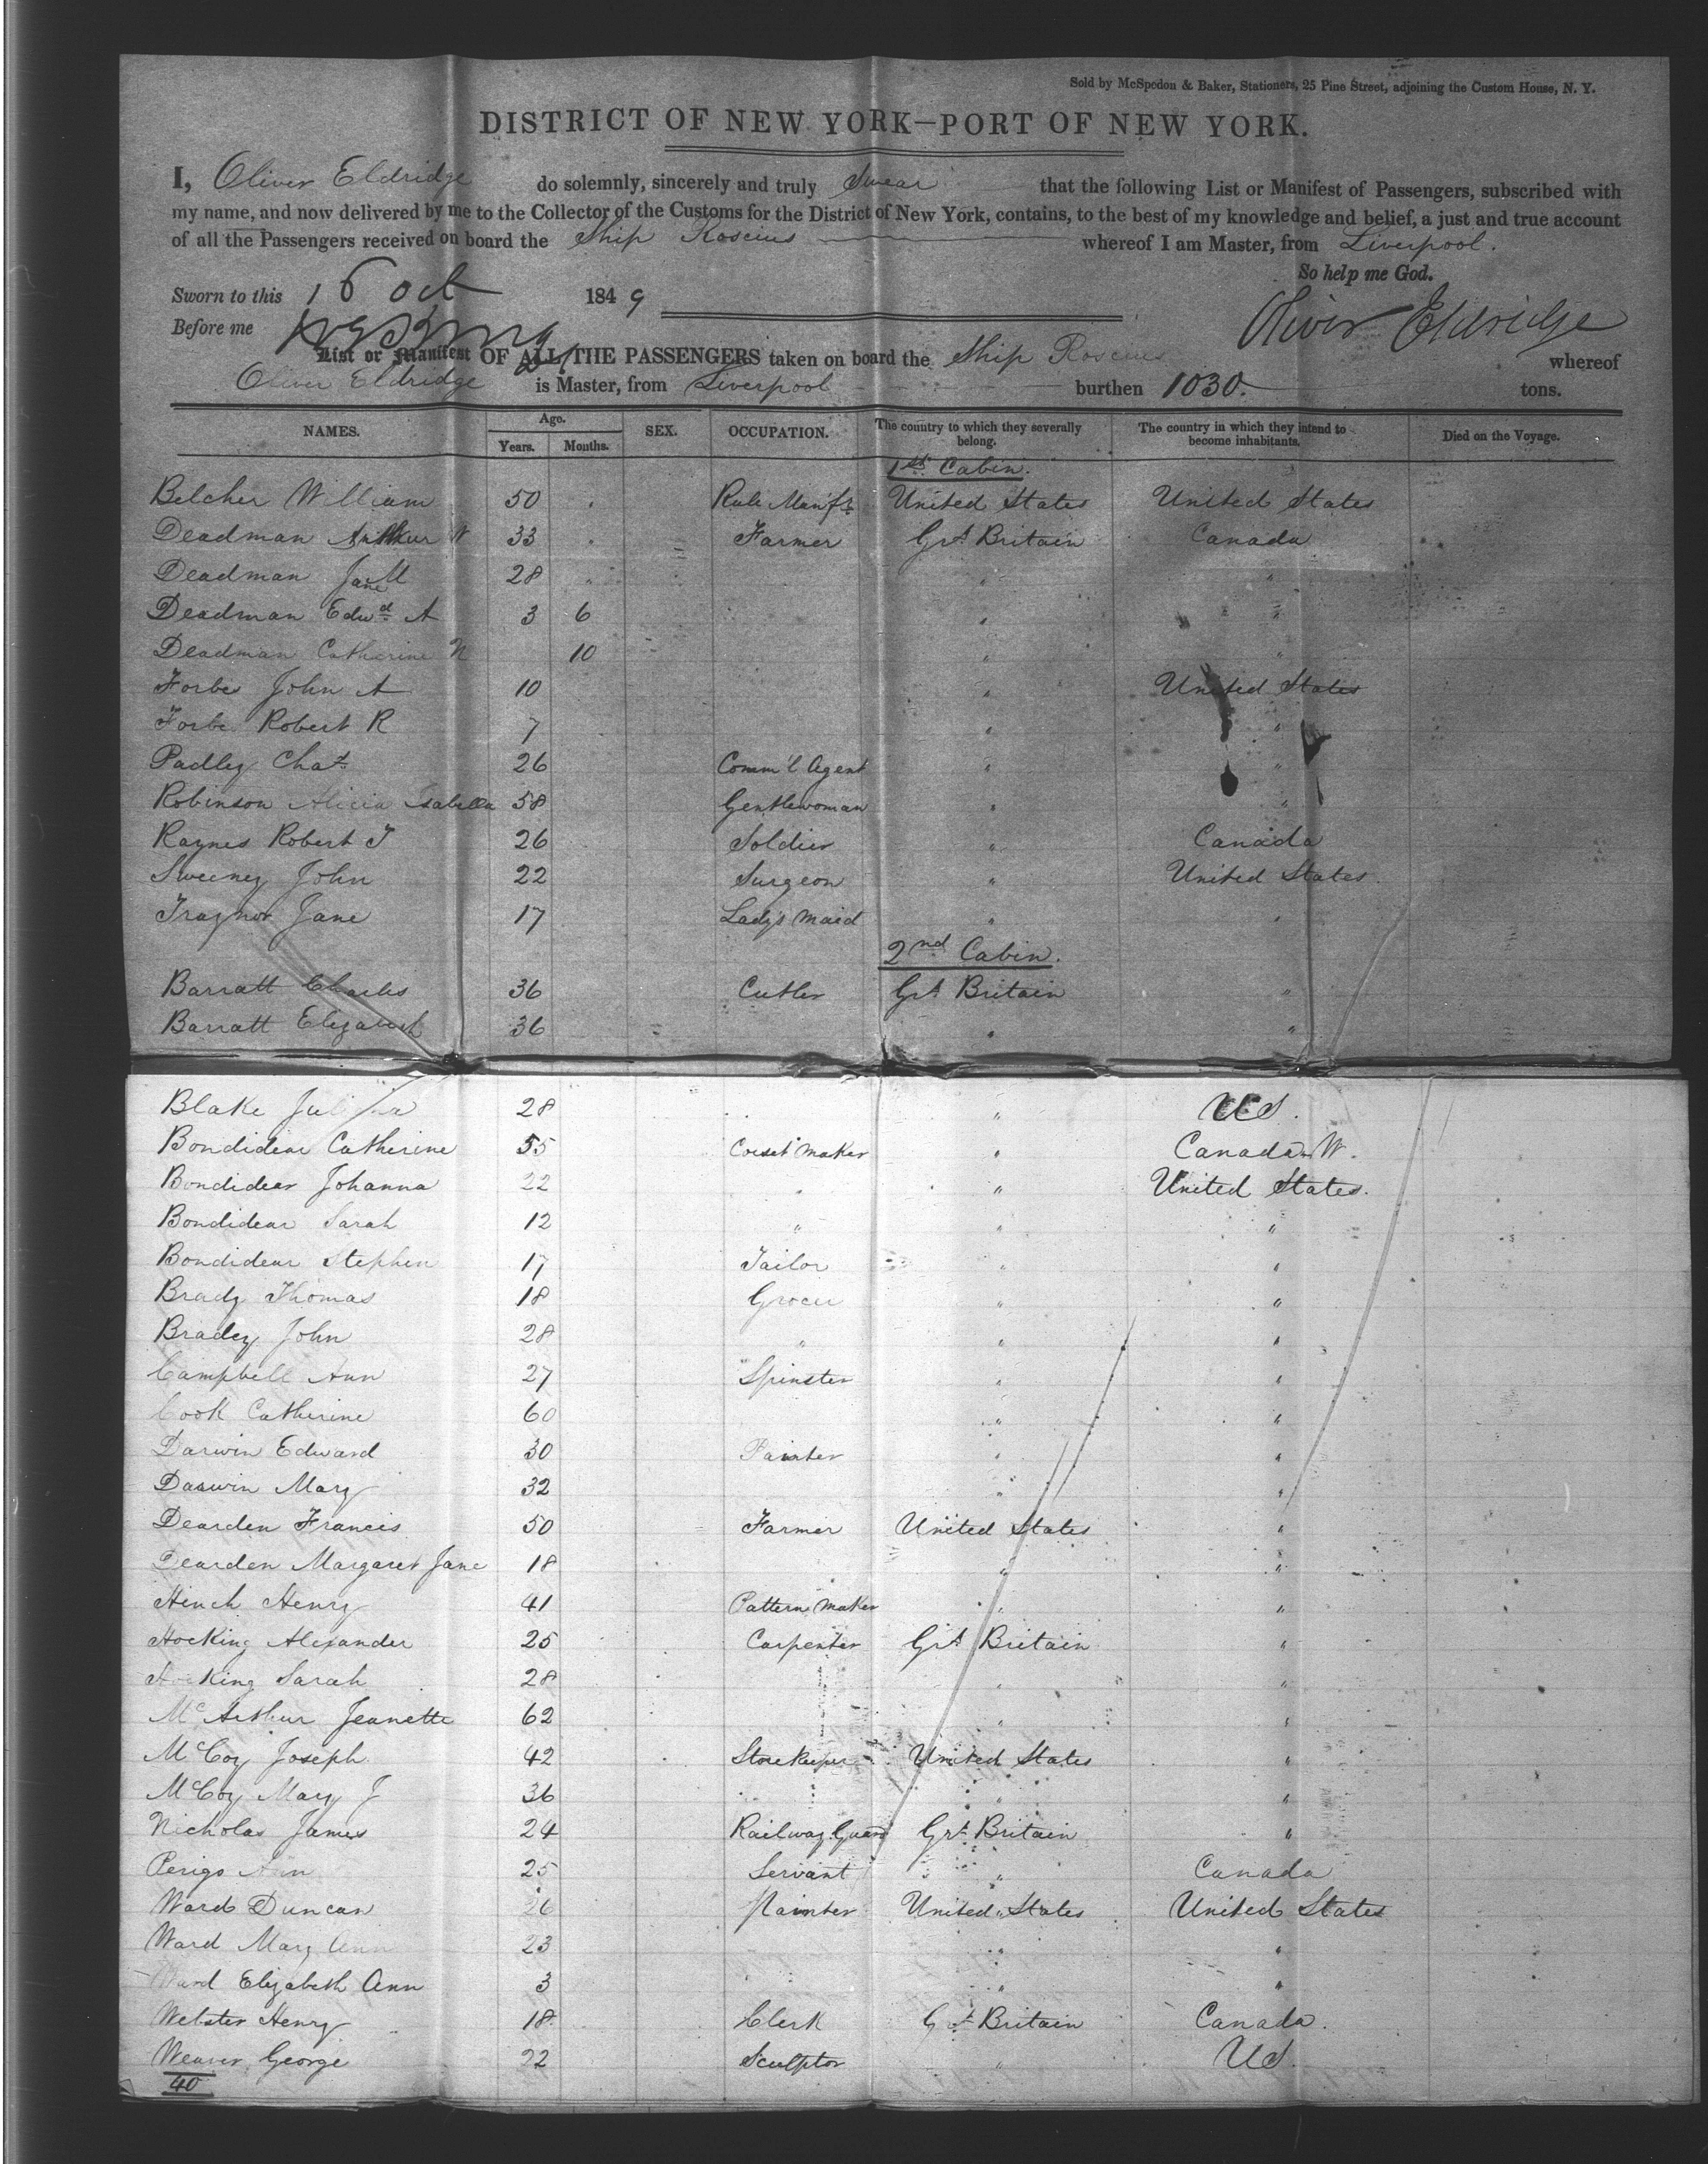 Sold by McSpedon & Baker, Stationers, 25 Pine Street, adjoining the Custom House, N. Y.
DISTRICT OF NEW YORK—PORT OF NEW YORK.
I, Oliver Eldridge do solemnly, sincerely and truly Swear that the following List or Manifest of Passengers, subscribed with
my name, and now delivered by me to the Collector of the Customs for the District of New York, contains, to the best of my knowledge and belief, a just and true account
of all the Passengers received on board the Ship Roscius whereof I am Master, from Liverpool.
So help me God.
Sworn to this 16 Oct 1849
Before me Oliver Eldridge
List or Manifest OF ALL THE PASSENGERS taken on board the Ship Roscius whereof
Oliver Eldridge is Master, from Liverpool burthen 1030. tons.
NAMES. Age. Years. Months. SEX. OCCUPATION. The country to which they severally belong. The country in which they intend to become inhabitants. Died on the Voyage.
1st Cabin.
Belcher William 50 Rule Manfr United States United States
Deadman Arthur W 33 Farmer Grt Britain Canada
Deadman Jane M 28 " "
Deadman Edwd A 3 6 " "
Deadman Catherine N 10 " "
Forbes John A 10 " United States
Forbe Robert R 7 " "
Padley Chas 26 Comm'l Agent " "
Robinson Alicia Isabella 58 Gentlewoman " "
Raynes Robert T 26 Soldier " Canada
Sweeney John 22 Surgeon " United States
Traynor Jane 17 Ladys Maid " "
2nd Cabin.
Barratt Charles 36 Cutler Grt Britain "
Barratt Elizabeth 36 " "
Blake Julia 28 " US.
Bondidear Catherine 55 Corset Maker " Canada W.
Bondidear Johanna 22 " " United States.
Bondidear Sarah 12 " " "
Bondidear Stephen 17 Tailor " "
Brady Thomas 18 Grocer " "
Bradey John 28 " " "
Campbell Ann 27 Spinster " "
Cook Catherine 60 " "
Darwin Edward 30 Painter " "
Darwin Mary 32 " "
Dearden Francis 50 Farmer United States "
Dearden Margaret Jane 18 " "
Hinch Henry 41 Pattern Maker " "
Hocking Alexander 25 Carpenter Grt Britain "
Hocking Sarah 28 " "
McArthur Jeanette 62 " "
McCoy Joseph 42 Storekeeper United States "
McCoy Mary J 36 " "
Nicholas James 24 Railway Guard Grt Britain "
Perigo Ann 25 Servant " Canada
Ward Duncan 26 Painter United States United States
Ward Mary Ann 23 " "
Ward Elizabeth Ann 3 " "
Webster Henry 18 Clerk Grt Britain Canada.
Weaver George 22 Sculptor " US.
40